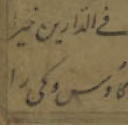 فی الدارین خیرا
کاوس و کی را